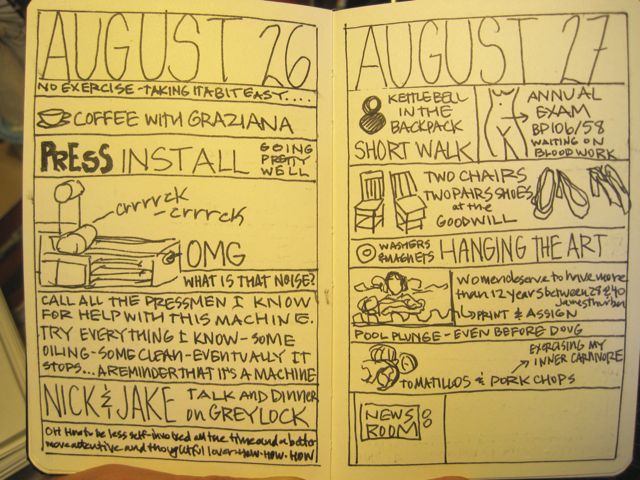 AUGUST 26
NO EXERCISE - TAKING IT A BIT EASY....
COFFEE WITH GRAZIANA
PRESS INSTALL
GOING
PRETTY
WELL
crrrrck
- crrrck
OMG
WHAT IS THAT NOISE?
CALL ALL THE PRESSMEN I KNOW
FOR HELP WITH THIS MACHINE.
TRY EVERYTHING I KNOW - SOME
OILING - SOME CLEAN - EVENTUALLY IT
STOPS... A REMINDER THAT IT'S A MACHINE
NICK & JAKE
TALK AND DINNER
on GREYLOCK
OH How to be less self-involved all the time and a better
more attentive and thoughtful lover - HOW. HOW. HOW
AUGUST 27
KETTLEBELL
IN THE
BACKPACK
SHORT WALK
ANNUAL
EXAM
BP106/58
WAITING ON
BLOODWORK
TWO CHAIRS
TWO PAIRS SHOES
at the
GOODWILL
WASHERS
& MAGNETS
HANGING THE ART
Women deserve to have more
than 12 years between 28 & 40
James Thurber
PRINT & ASSIGN
POOL PLUNGE - EVEN BEFORE DOUG
EXERCISING MY
INNER CARNIVORE
TOMATILLOS & PORK CHOPS
NEWS
ROOM